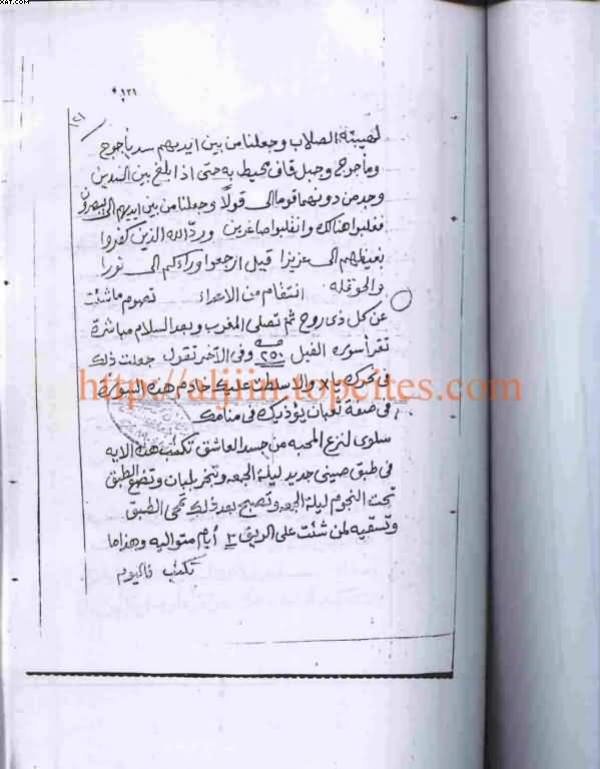 XAT.COM
١٢١
١٢١
لهيبته الصلاب وجعلنا من بين ايديهم سد يأجوج
ومأجوج وجبل قاف محيط به حتى اذا بلغ بين السدين
وجد من دونهما قوما الى قولًا وجعلنا من بين ايديهم الى يبصرون
فغلبوا هنالك وانقلبوا صاغرين ورد الله الذين كفروا
بغيظهم الى عزيزا قيل ارجعوا وراءكم الى نورا
والحوقله انتقام من الاعداء تصوم ما شئت
عن كل ذى روح ثم تصلى المغرب وبعد السلام مباشرة
تقرأ سورة الفيل ٢٥٠ وفى الآخر تقول جعلت ذلك
فى نحرك يا والا سلطت عليك خادم هذه السورة
http://aljiin.topcites.com
فى صفة ثعبان يؤذيك فى منامك
سلوى لنزع المحبه من جسد العاشق تكتب هذه الايه
فى طبق صينى جديد ليلة الجمعه وتبخر بلبان وتضع الطبق
تحت النجوم ليلة الجمعه وتصبح بعد ذلك تمحى الطبق
وتسقيه لمن شئت على الريق ٣ أيام متواليه وهذا ما
تكتب فاليوم